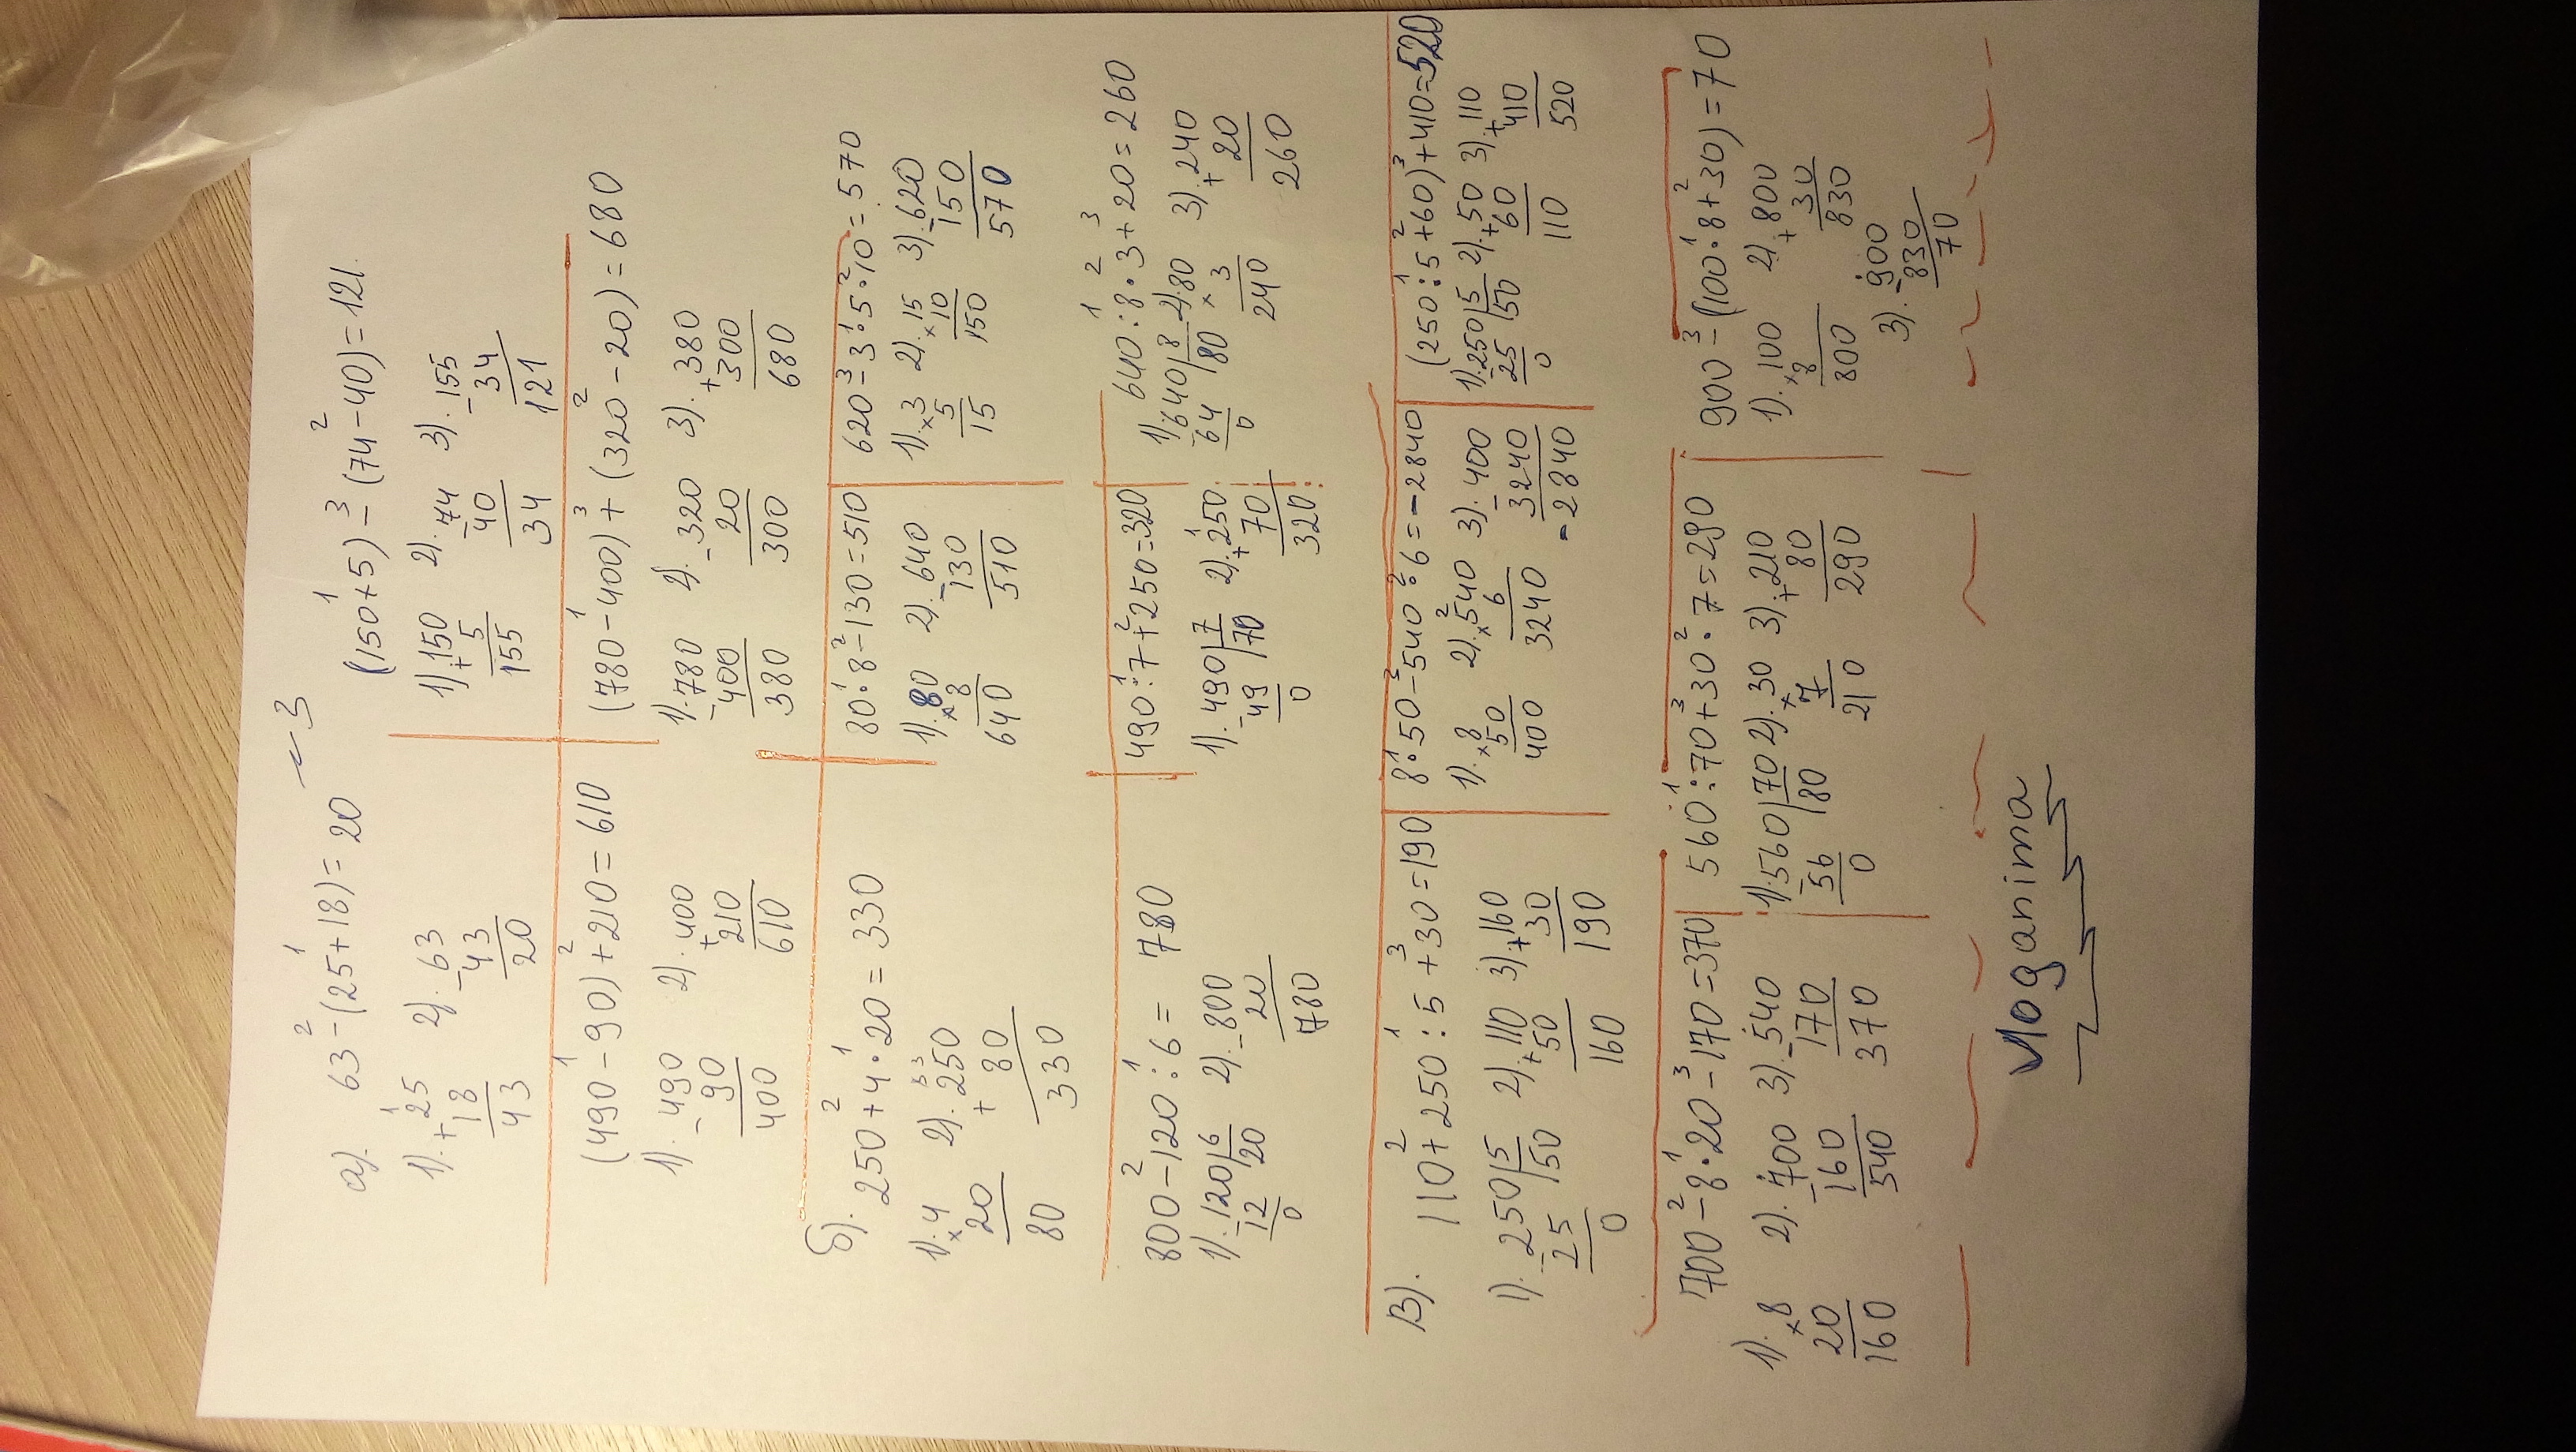 ~ 3
а). 63 - (25+18) = 20 (150+5) - (74-40) = 121.
2 1 1 3 2
1). + 25 2). - 63 1). + 150 2). - 74 3). - 155
18 43 5 40 34
43 20 155 34 121
(490-90)+210=610 (780-400)+(320-20)=680
1 2 1 3 2
1). - 490 2). + 400 1). - 780 2). - 320 3). + 380
90 210 400 20 300
400 610 380 300 680
б). 250+4·20=330 80·8-130=510 620-3·5·10=570
2 1 1 2 3 1 2
1). × 4 2). + 250 1). × 80 2). - 640 1). × 3 2). × 15 3). - 620
20 80 8 130 5 10 150
80 330 640 510 15 150 570
800-120:6= 780 490:7+250=320 640:8·3+20=260
2 1 1 2 1 2 3
1). - 120|6 2). - 800 1). - 490|7 2). + 250. 1). - 640|8 2). 80 3). + 240
12 20 20 49 70 70 64 80 × 3 20
0 780 0 320 0 240 260
В). 110+250:5+30=190 8·50-540·6=-2840 (250:5+60)+410=520
2 1 3 1 3 2 1 2 3
1). - 250|5 2). + 110 3). + 160 1). × 8 2). × 540 3). - 400 1). - 250|5 2). + 50 3). + 110
25 50 50 30 50 6 3240 25 50 60 410
0 160 190 400 3240 - 2840 0 110 520
700-8·20-170=370 560:70+30·7=290 900-(100·8+30)=70
2 1 3 1 3 2 3 1 2
1). × 8 2). - 700 3). - 540 1). - 560|70 2). × 30 3). + 210 1). × 100 2). + 800
20 160 170 56 80 7 80 8 30
160 540 370 0 210 290 800 830
3). - 900
830
70
Vloganima